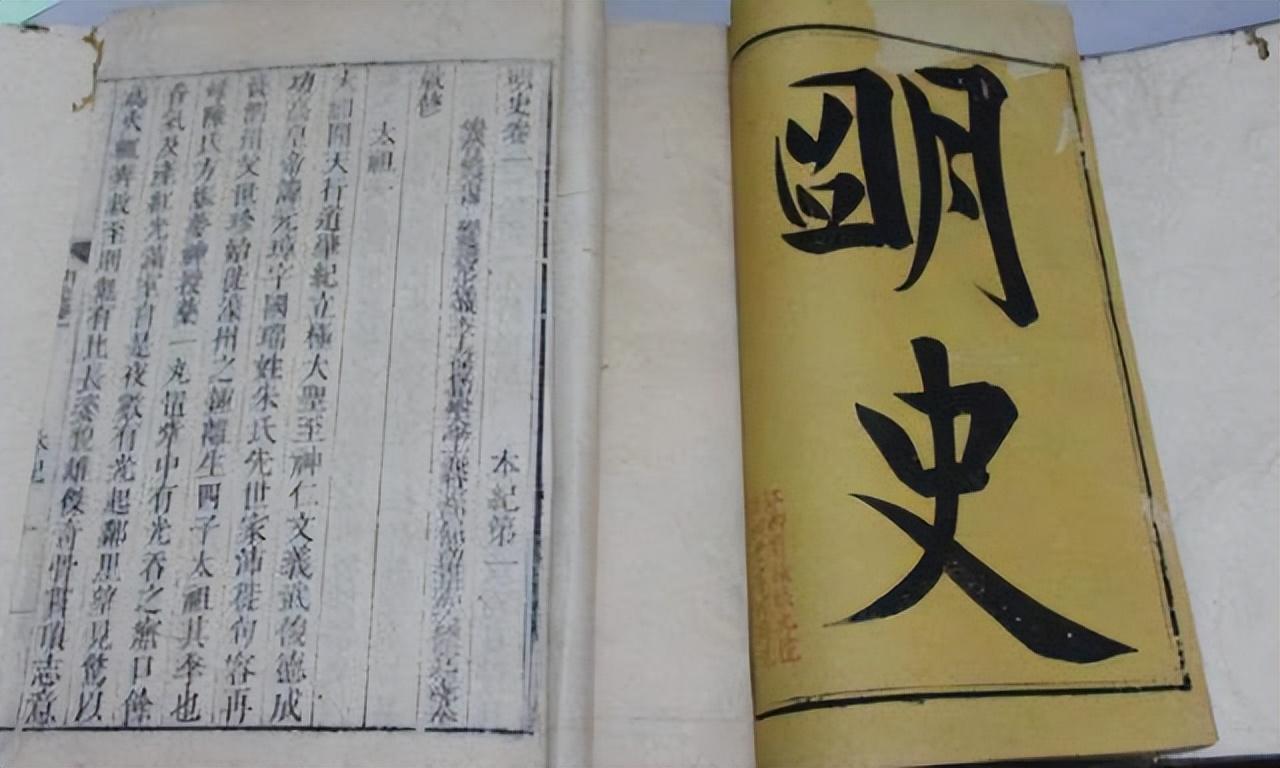 朙史
明史卷一 本紀第一
敕修
太祖一
太祖開天行道肇紀立極大聖至神仁文義武俊德成
功高皇帝諱元璋字國瑞姓朱氏先世家沛徙句容再
徙泗州父世珍始徙濠州之鍾離生四子太祖其季也
母陳氏方娠夢神授藥一丸置掌中有光吞之寤口餘
香氣及產紅光滿室自是夜數有光起鄰里望見驚以
為火輒奔救至則無有比長姿貌雄傑奇骨貫頂志意
本紀